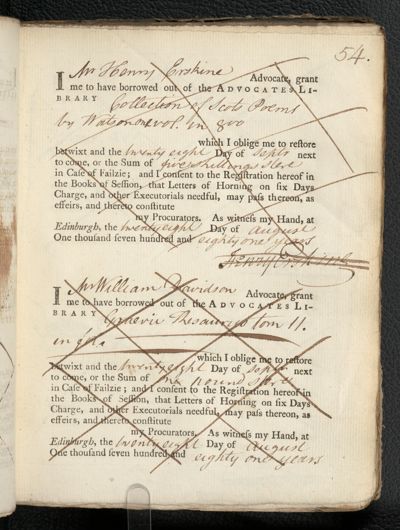 54.
I Mr Henry Erskine Advocate, grant
me to have borrowed out of the ADVOCATES LI-
BRARY Collection of Scots Poems
by Watson one vol. in 8vo
which I oblige me to restore
betwixt and the twenty eight Day of Septr next
to come, or the Sum of five shillings Ster
in Case of Failzie; and I consent to the Registration hereof in
the Books of Session, that Letters of Horning on six Days
Charge, and other Executorials needful, may pass thereon, as
effeirs, and thereto constitute
my Procurators. As witness my Hand, at
Edinburgh, the twenty eight Day of August
One thousand seven hundred and eighty one years
Henry Erskine
I Mr William Davidson Advocate, grant
me to have borrowed out of the ADVOCATES LI-
BRARY Graevii Thesaurus tom 11.
in fol.
which I oblige me to restore
betwixt and the twenty eight Day of Septr next
to come, or the Sum of one pound Ster
in Case of Failzie; and I consent to the Registration hereof in
the Books of Session, that Letters of Horning on six Days
Charge, and other Executorials needful, may pass thereon, as
effeirs, and thereto constitute
my Procurators. As witness my Hand, at
Edinburgh, the twenty eight Day of August
One thousand seven hundred and eighty one years